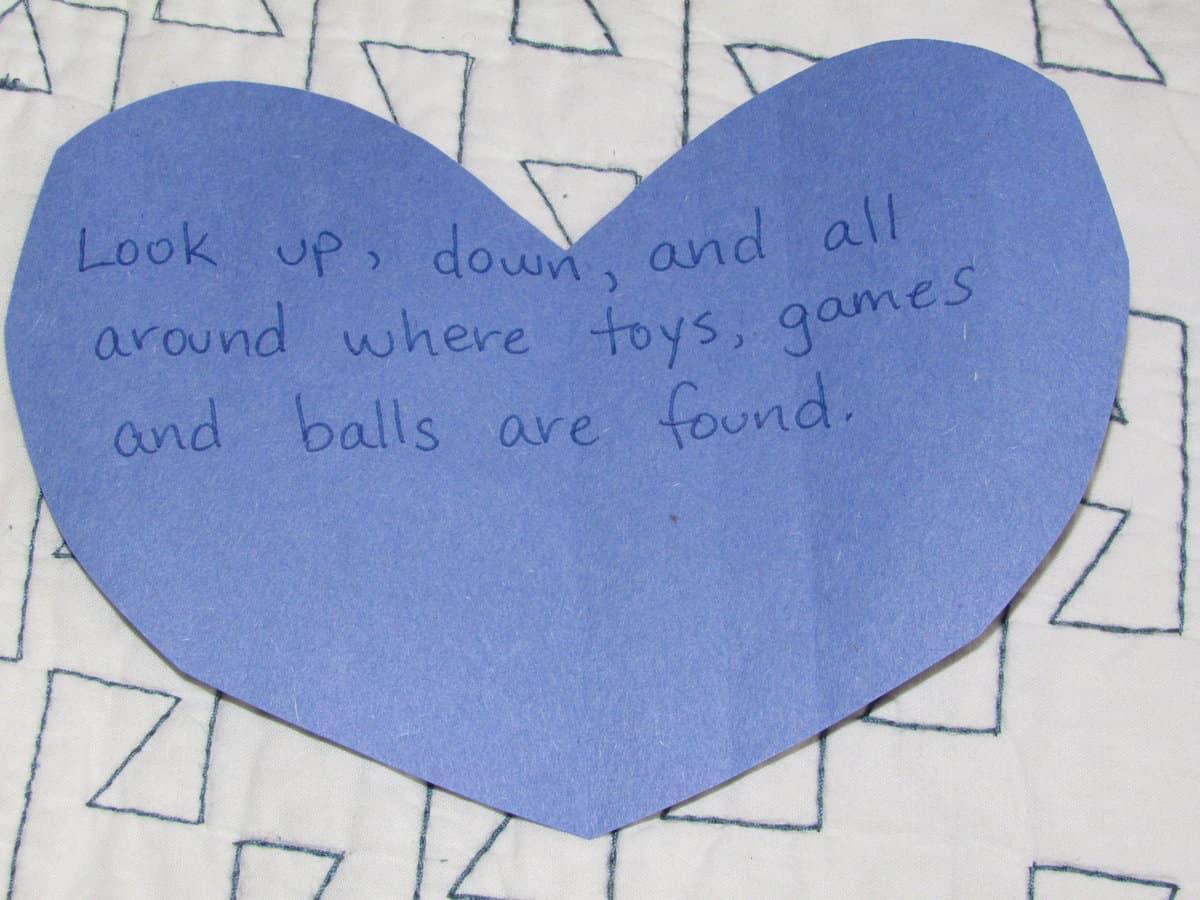 Look up, down, and all
around where toys, games
and balls are found.